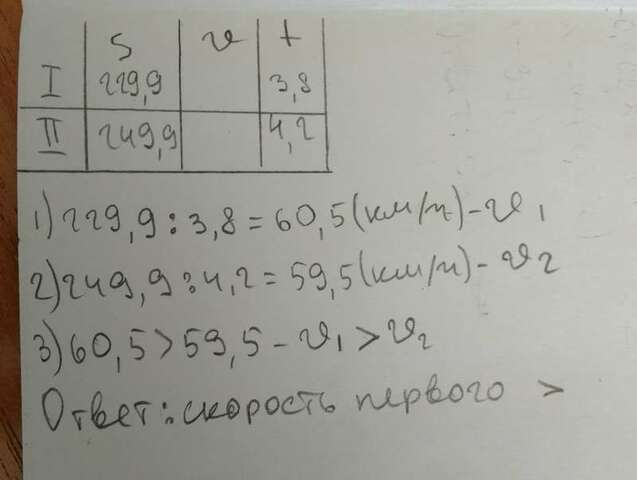 S v t
I 229,9 3,8
II 249,9 4,2
1) 229,9 : 3,8 = 60,5 (км/ч) - v₁
2) 249,9 : 4,2 = 59,5 (км/ч) - v₂
3) 60,5 > 59,5 - v₁ > v₂
Ответ: скорость первого >